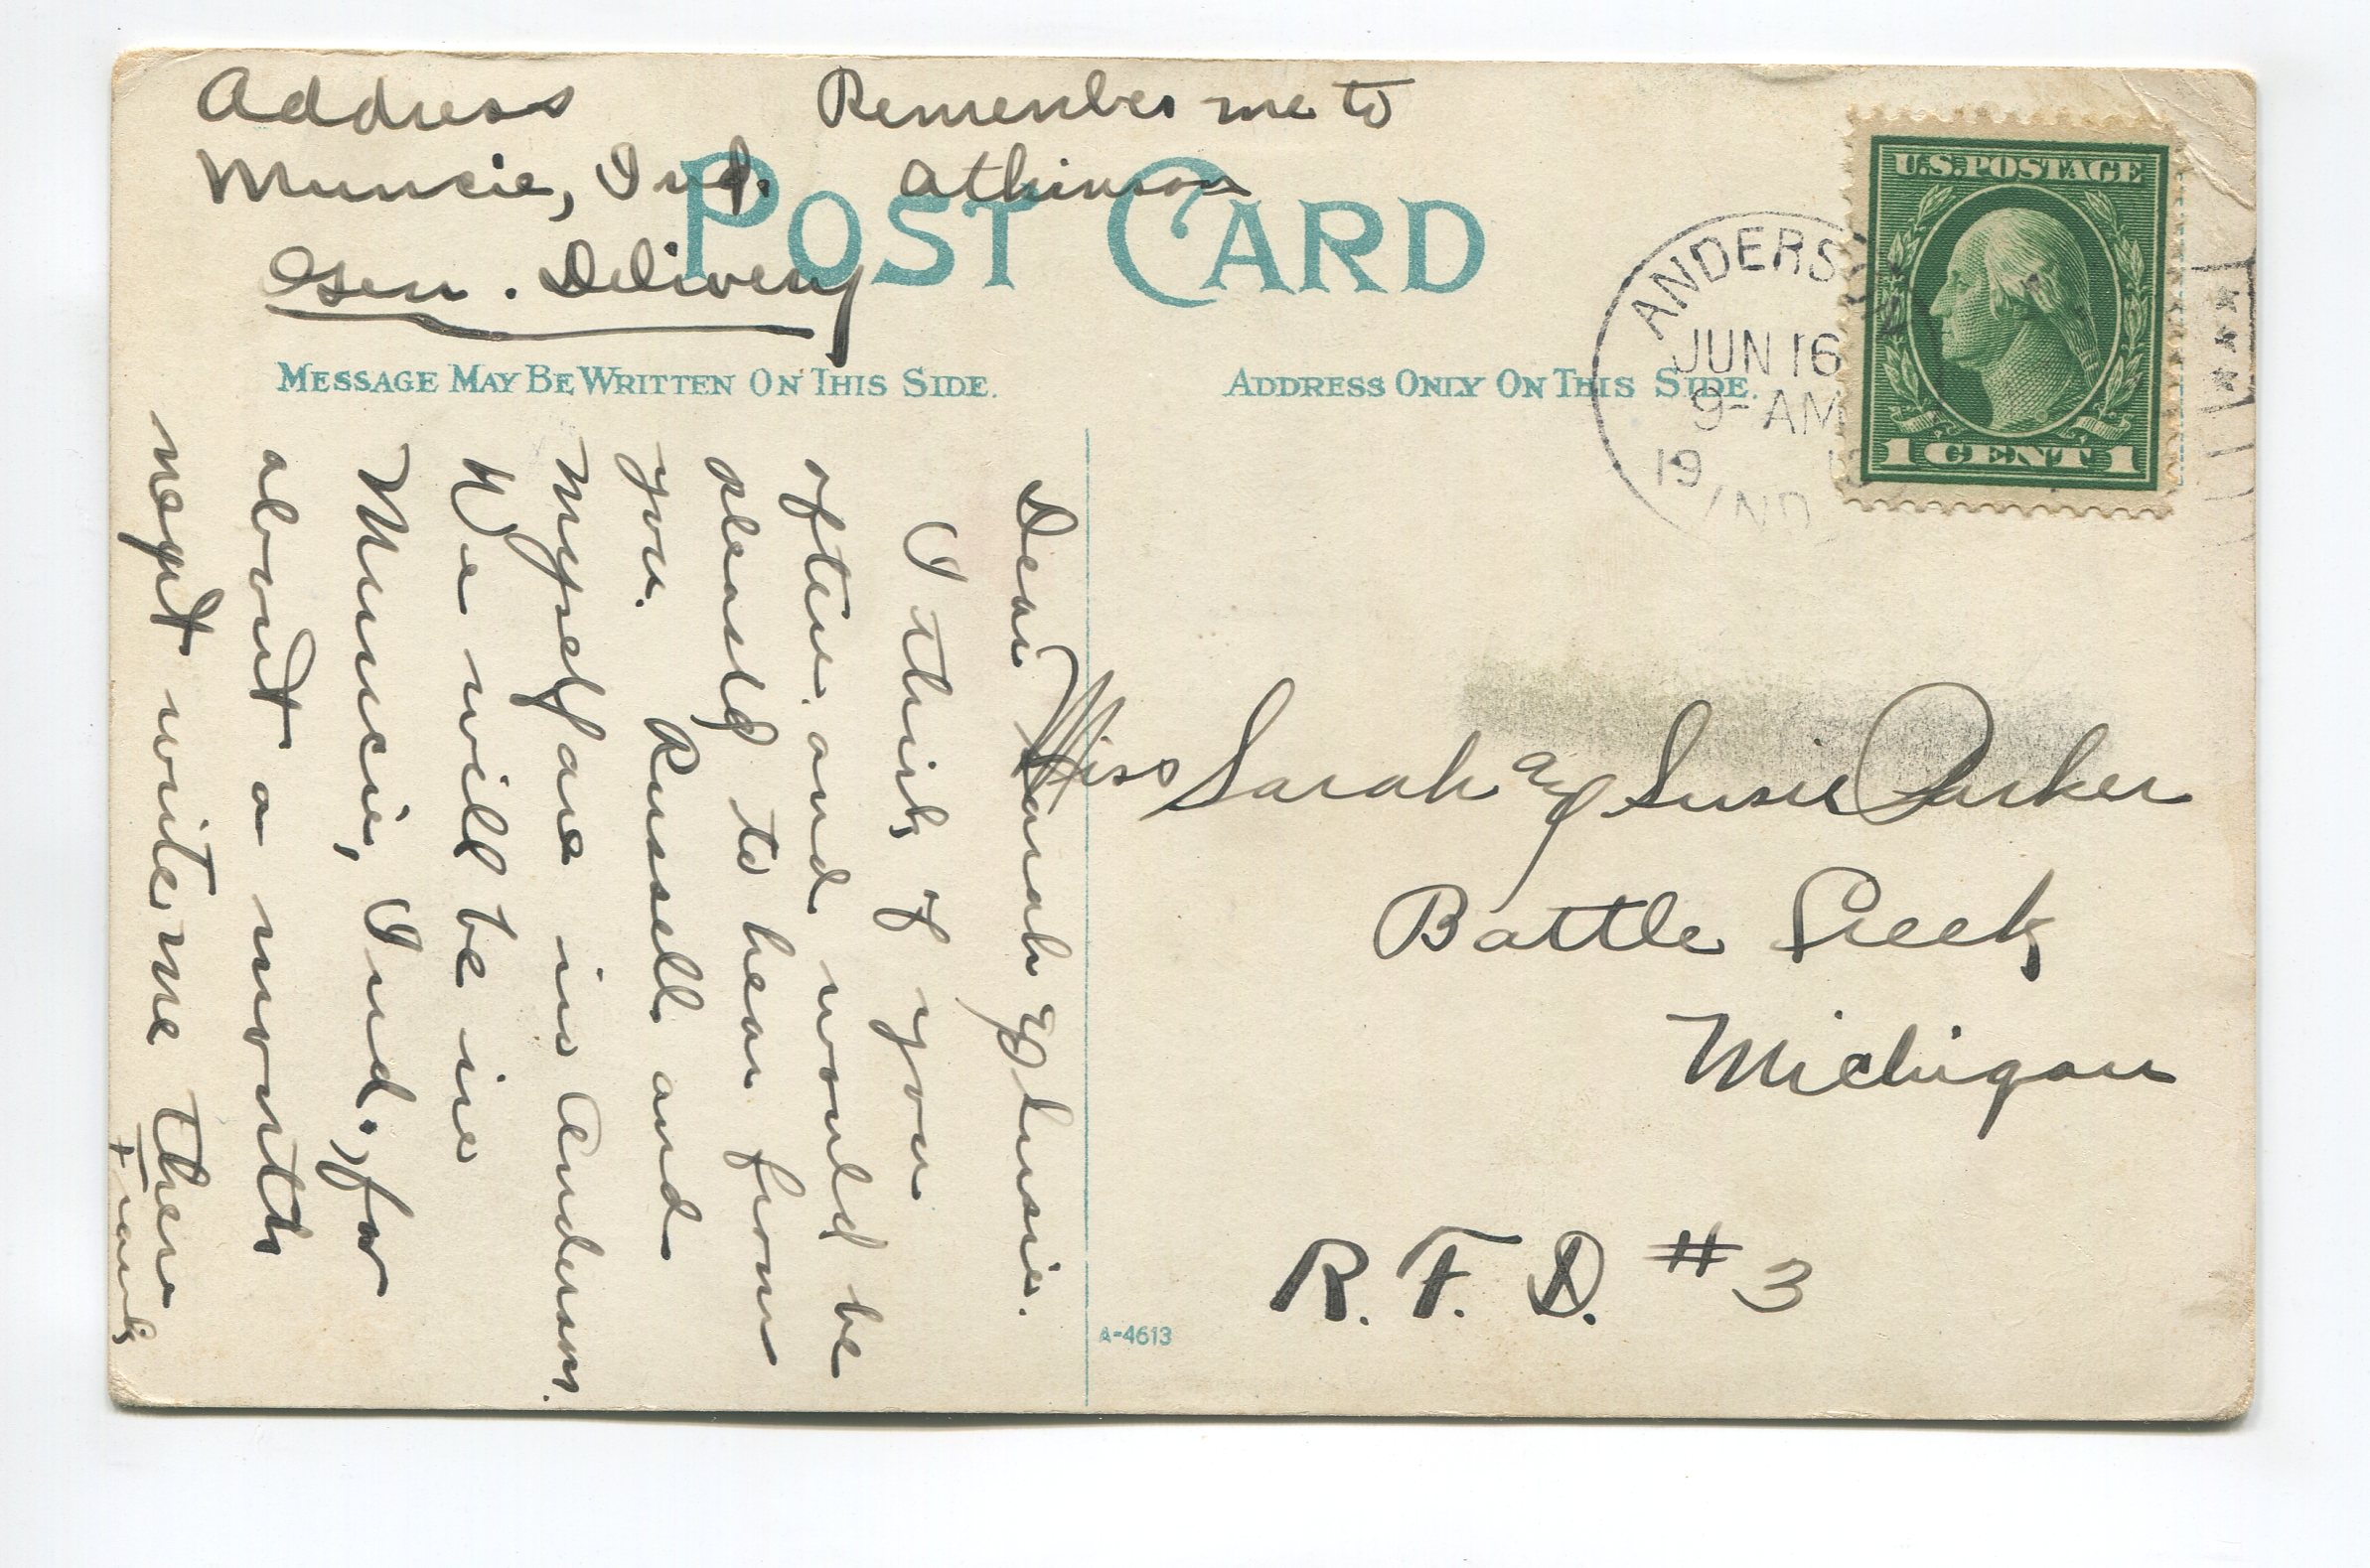 Address
Muncie, Ind.
Gen. Delivery
Remember me to
Atkinson
POST CARD
MESSAGE MAY BE WRITTEN ON THIS SIDE.
ADDRESS ONLY ON THIS SIDE.
U.S. POSTAGE
1 CENT 1
ANDERSON
JUN 16
9-AM
19
IND
Dear Sarah & Susie.
I think of you
often and would be
pleased to hear from
you. Russell and
Myself are in Anderson.
We will be in
Muncie, Ind., for
about a month
next write me there
Frank
Miss Sarah and Susie Parker
Battle Creek
Michigan
R. F. D. #3
A-4613